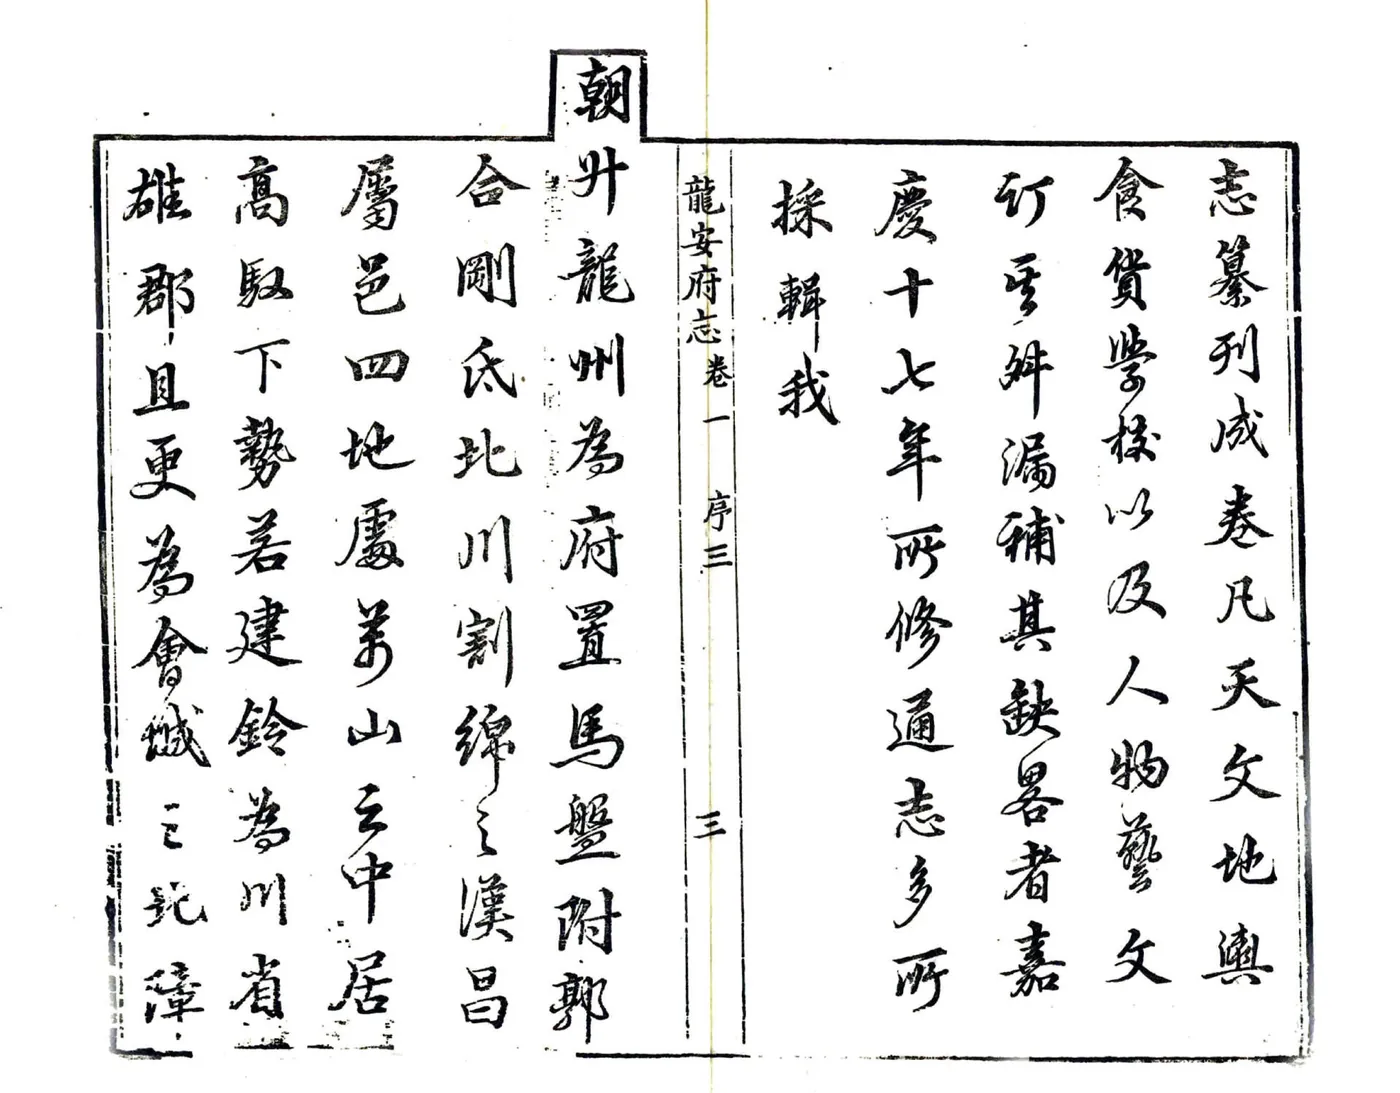 志纂刊成卷凡天文地輿
食貨學校以及人物藝文
訂其舛漏補其缺畧者嘉
慶十七年所修通志多所
採輯我
龍安府志 卷一 序三 三
朝升龍州為府置馬盤附郭
合剛氐北川割綿之漢昌
屬邑四地處萬山之中居
高馭下勢若建鈴為川省
雄郡且更為會城之北障